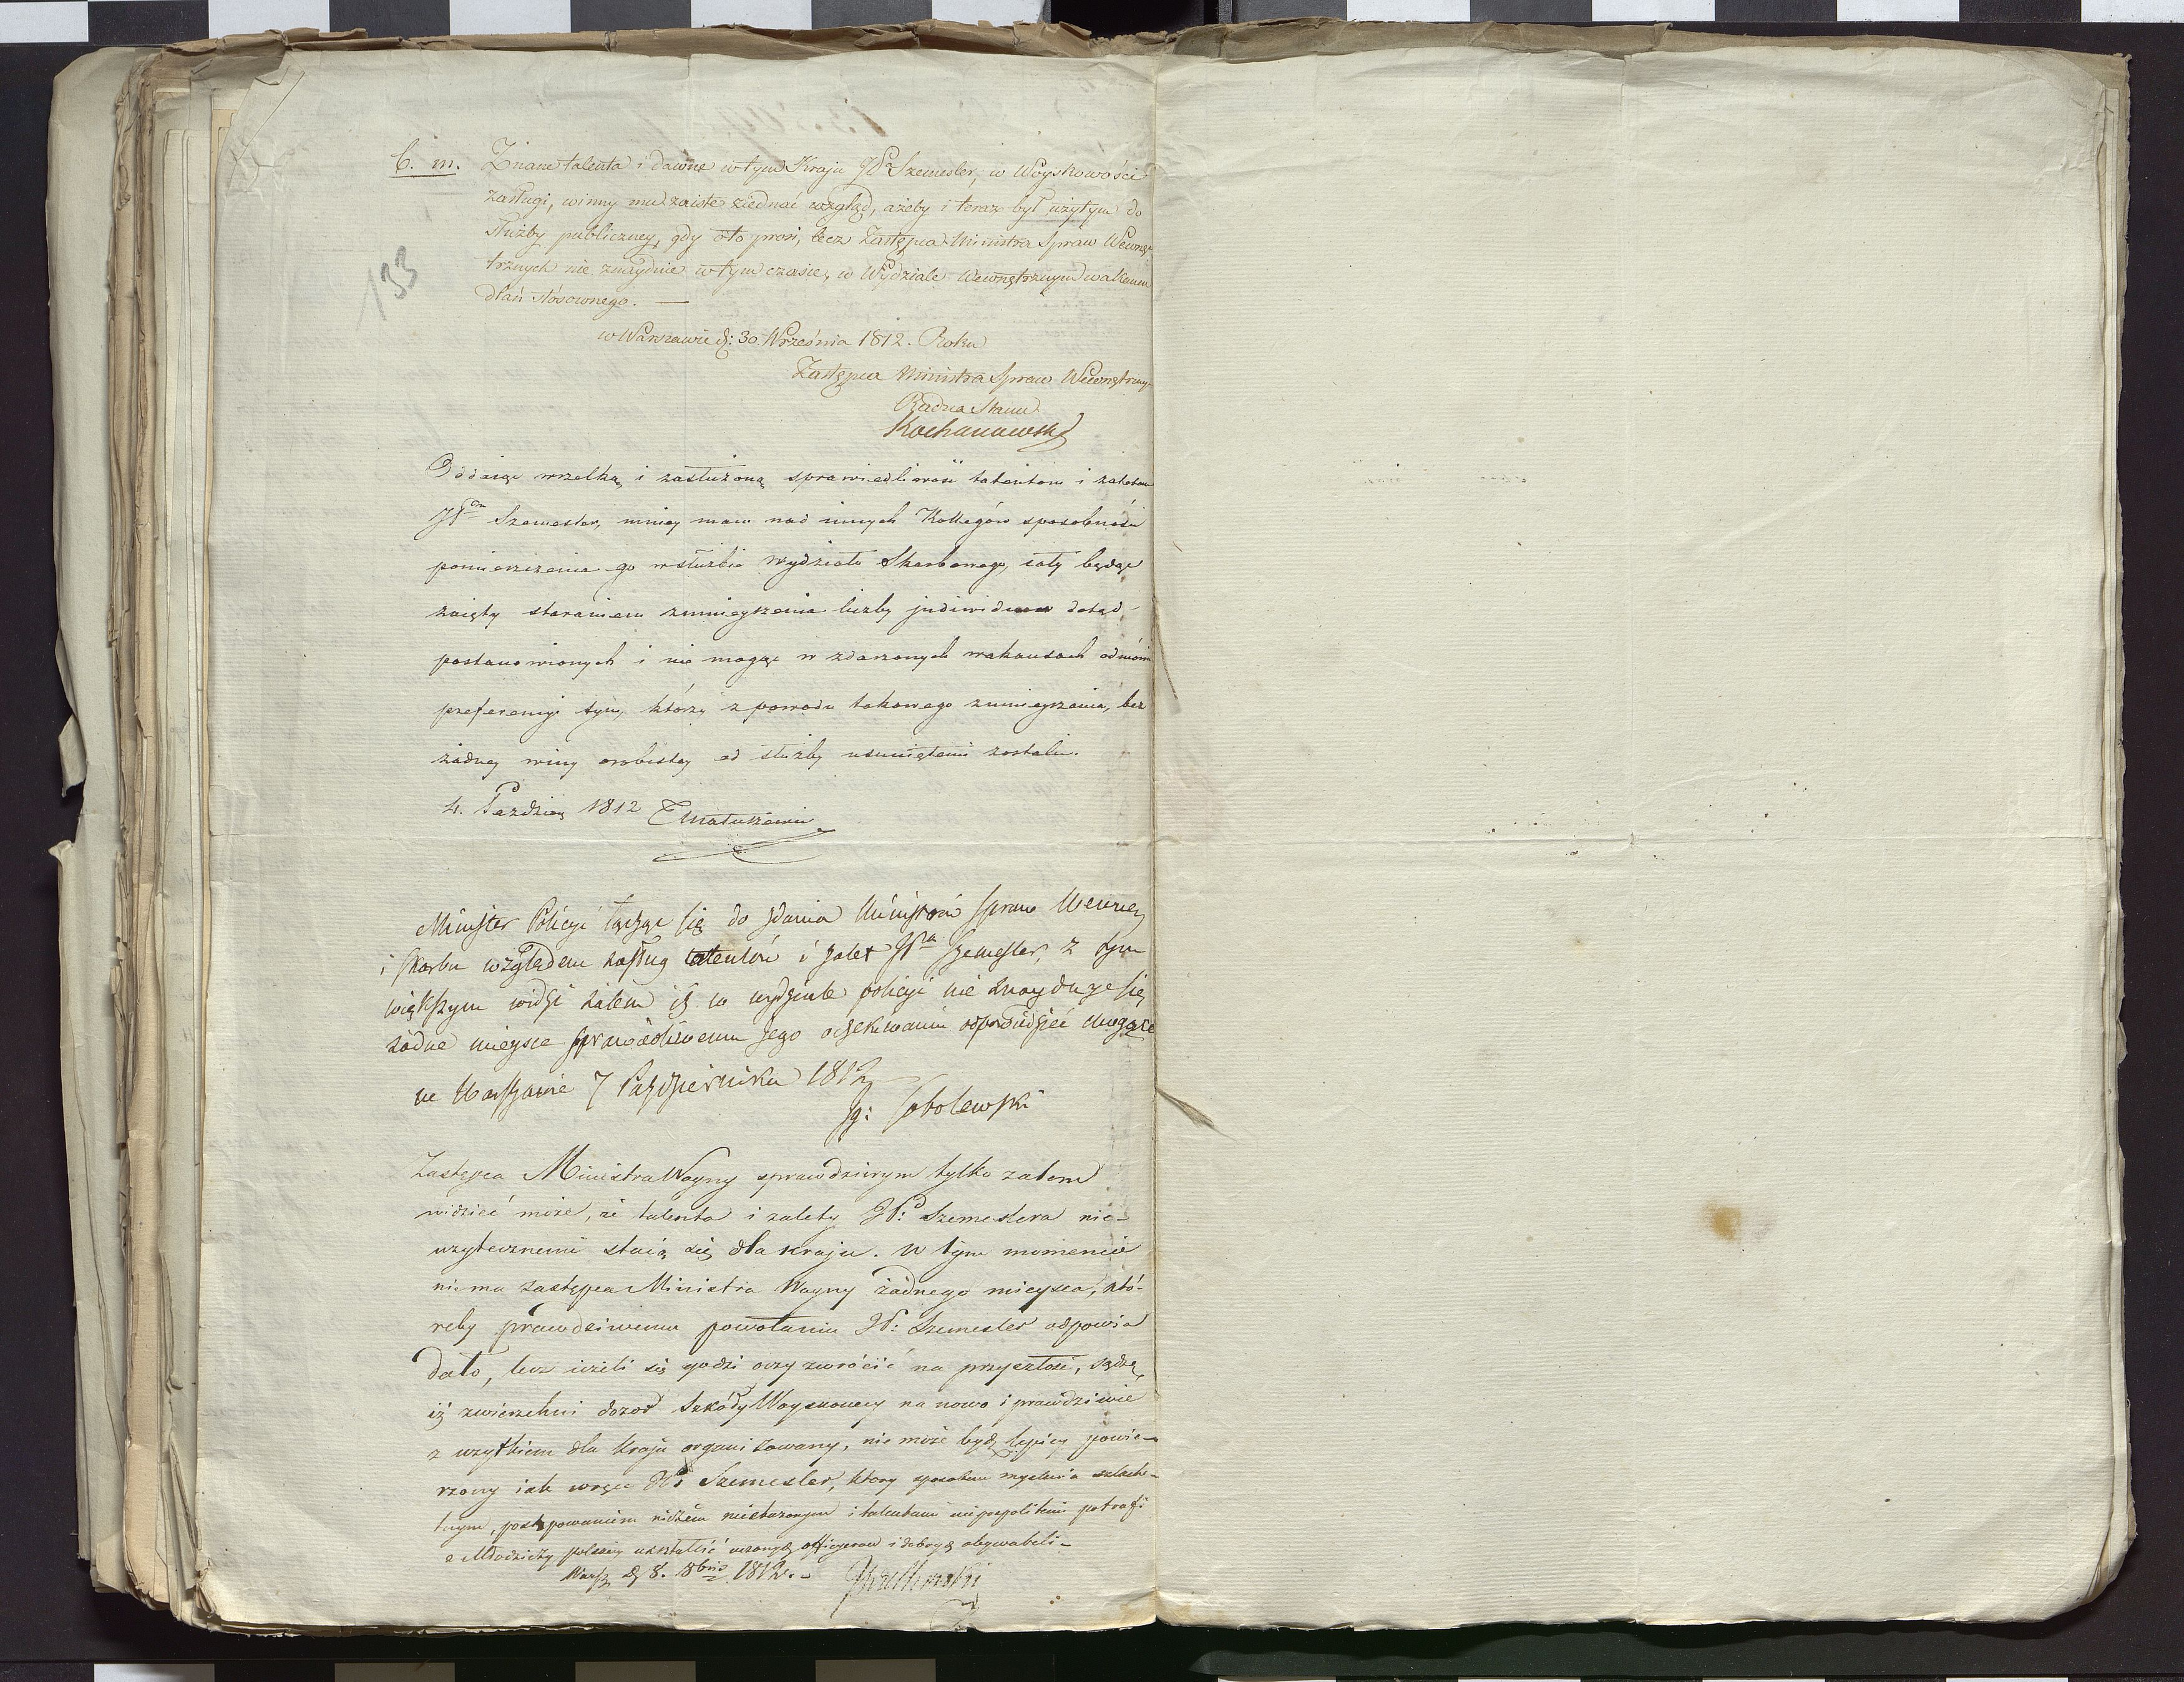 C. m. Znane talenta i dawne w tym Kraju JPa Szemesler, w Woyskowości
zasługi, winny mu zaiste ziednać wzgląd, ażeby i teraz był użytym do
służby publiczney, gdy oto prosi, lecz Zastępca Ministra Spraw Wewnę-
trznych nie znayduie w tym czasie, w Wydziale Wewnętrznym wakansu
dlań stósownego. —
133
w Warszawie d: 30. Września 1812. Roku
Zastępca Ministra Spraw Wewnętrzny
Radca Stanu
Kochanowski
Oddaiąc wszelką i zasłużoną sprawiedliwość talentom i zaletom
JPa Szemesler, mniey mam nad innych Kollegów sposobności
pomieszczenia go w służbie wydziału Skarbowego, cały będąc
zaięty staraniem zmnieyszenia liczby indiwiduów dotąd
postanowionych i nie mogąc w zdarzonych wakansach odmówić
preferencyi tym, którzy z powodu takowego zmnieyszenia, bez
żadney winy osobistey od służby usuniętemi zostali.
4. Paździer 1812 TMatuszewic
Minister Policyi łącząc się do zdania Ministrów spraw Wewnę
i skarbu względem zasług talentów i zalet JPa Szemesler, z tym
większym widzi żalem iż w wydziale policyi nie znayduje się
żadne mieysce sprawiedliwemu jego oczekiwaniu odpowiedzieć mogące
we Warszawie 7 Października 1812
Ig: Sobolewski
Zastępca Ministra Woyny z prawdziwym tylko żalem
widzieć może, że talenta i zalety JP: Szemeslera nie-
użytecznemi staią się dla kraju. W tym momencie
nie ma zastępca Ministra Woyny żadnego mieysca, któ-
reby prawdziwemu powołaniu JP: Szemesler odpowia
dało, lecz ieżeli się godzi oczy zwrócić na przyszłość, sądzę
iż zwierzchni dozór Szkoły Woyskowey na nowo i prawdziwie
z użytkiem dla kraju organizowany, nie może bydź lepiey powie-
rzony iak w ręce JP: Szemesler, który sposobem myślenia szlache-
tnym, postępowaniem niczem nieskażonym i talentami niepospolitemi potrafi
z Młodzieży polskiey ukształcić uczonych officyerów i dobrych obywateli-
Warsz d 8. 8bris 1812. -